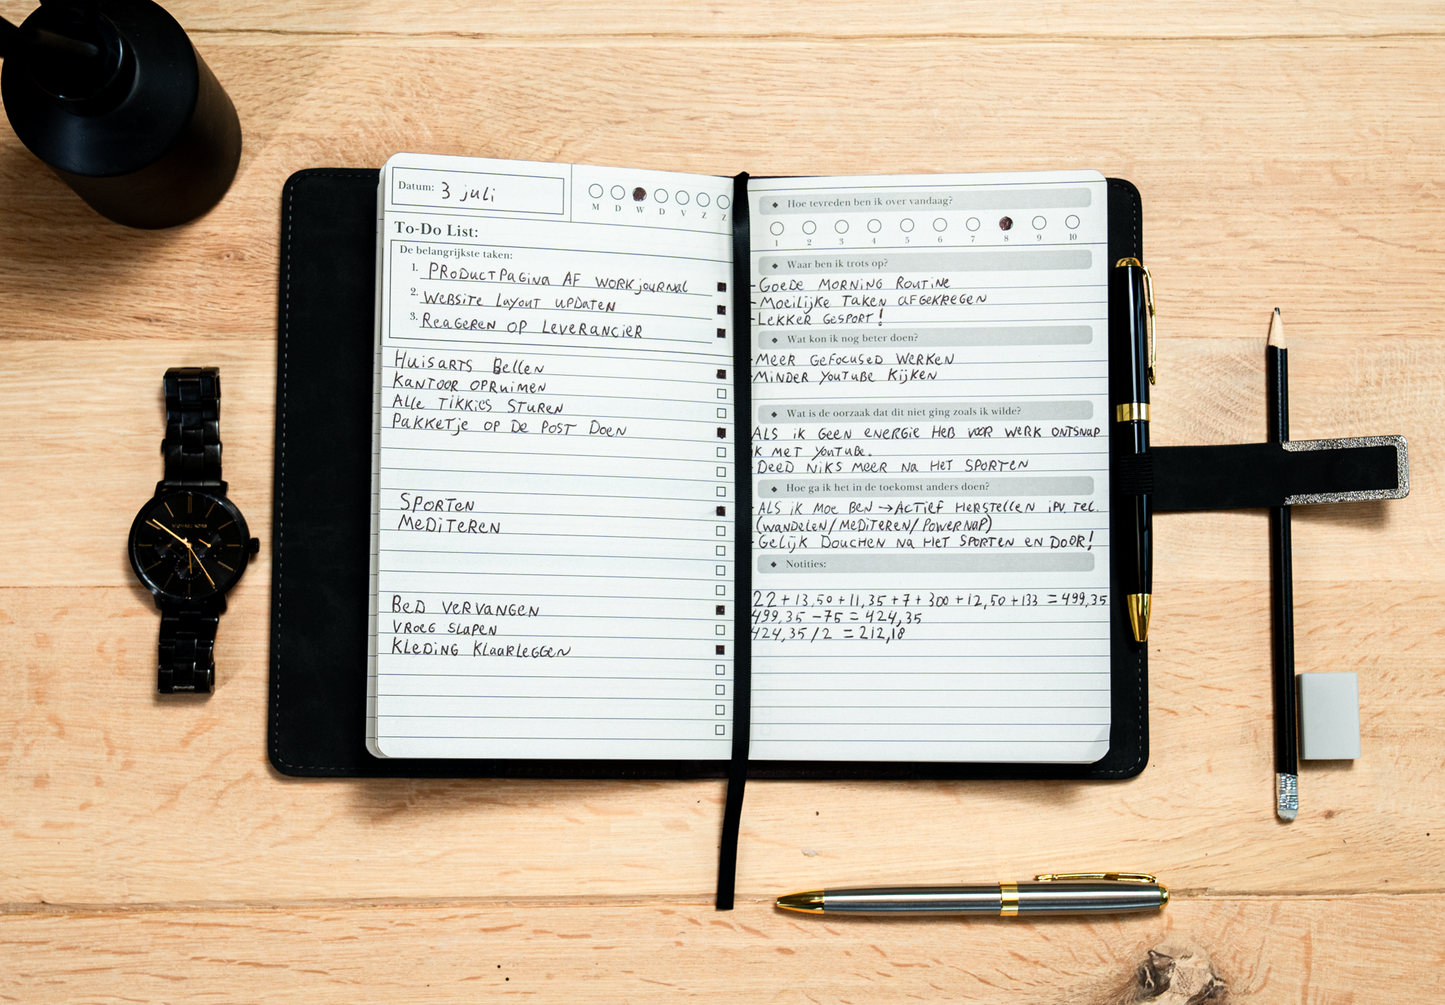 Datum: 3 juli
M D W D V Z Z
To-Do List:
De belangrijkste taken:
1. PRODUCTPAGINA AF WORKJOURNAL
2. WEBSITE LAYOUT UPDATEN
3. REAGEREN OP LEVERANCIER
HUISARTS BELLEN
KANTOOR OPRUIMEN
ALLE TIKKIES STUREN
PAKKETJE OP DE POST DOEN
SPORTEN
MEDITEREN
BED VERVANGEN
VROEG SLAPEN
KLEDING KLAARLEGGEN
Hoe tevreden ben ik over vandaag?
1 2 3 4 5 6 7 8 9 10
Waar ben ik trots op?
- GOEDE MORNING ROUTINE
- MOEILIJKE TAKEN AFGEKREGEN
- LEKKER GESPORT!
Wat kon ik nog beter doen?
- MEER GEFOCUSED WERKEN
- MINDER YOUTUBE KIJKEN
Wat is de oorzaak dat dit niet ging zoals ik wilde?
ALS IK GEEN ENERGIE HEB VOOR WERK ONTSNAP
IK MET YOUTUBE.
- DEED NIKS MEER NA HET SPORTEN
Hoe ga ik het in de toekomst anders doen?
- ALS IK MOE BEN → ACTIEF HERSTELLEN IPV TEL.
(WANDELEN/MEDITEREN/POWERNAP)
- GELIJK DOUCHEN NA HET SPORTEN EN DOOR!
Notities:
22 + 13,50 + 11,35 + 7 + 300 + 12,50 + 133 = 499,35
499,35 - 75 = 424,35
424,35 / 2 = 212,18